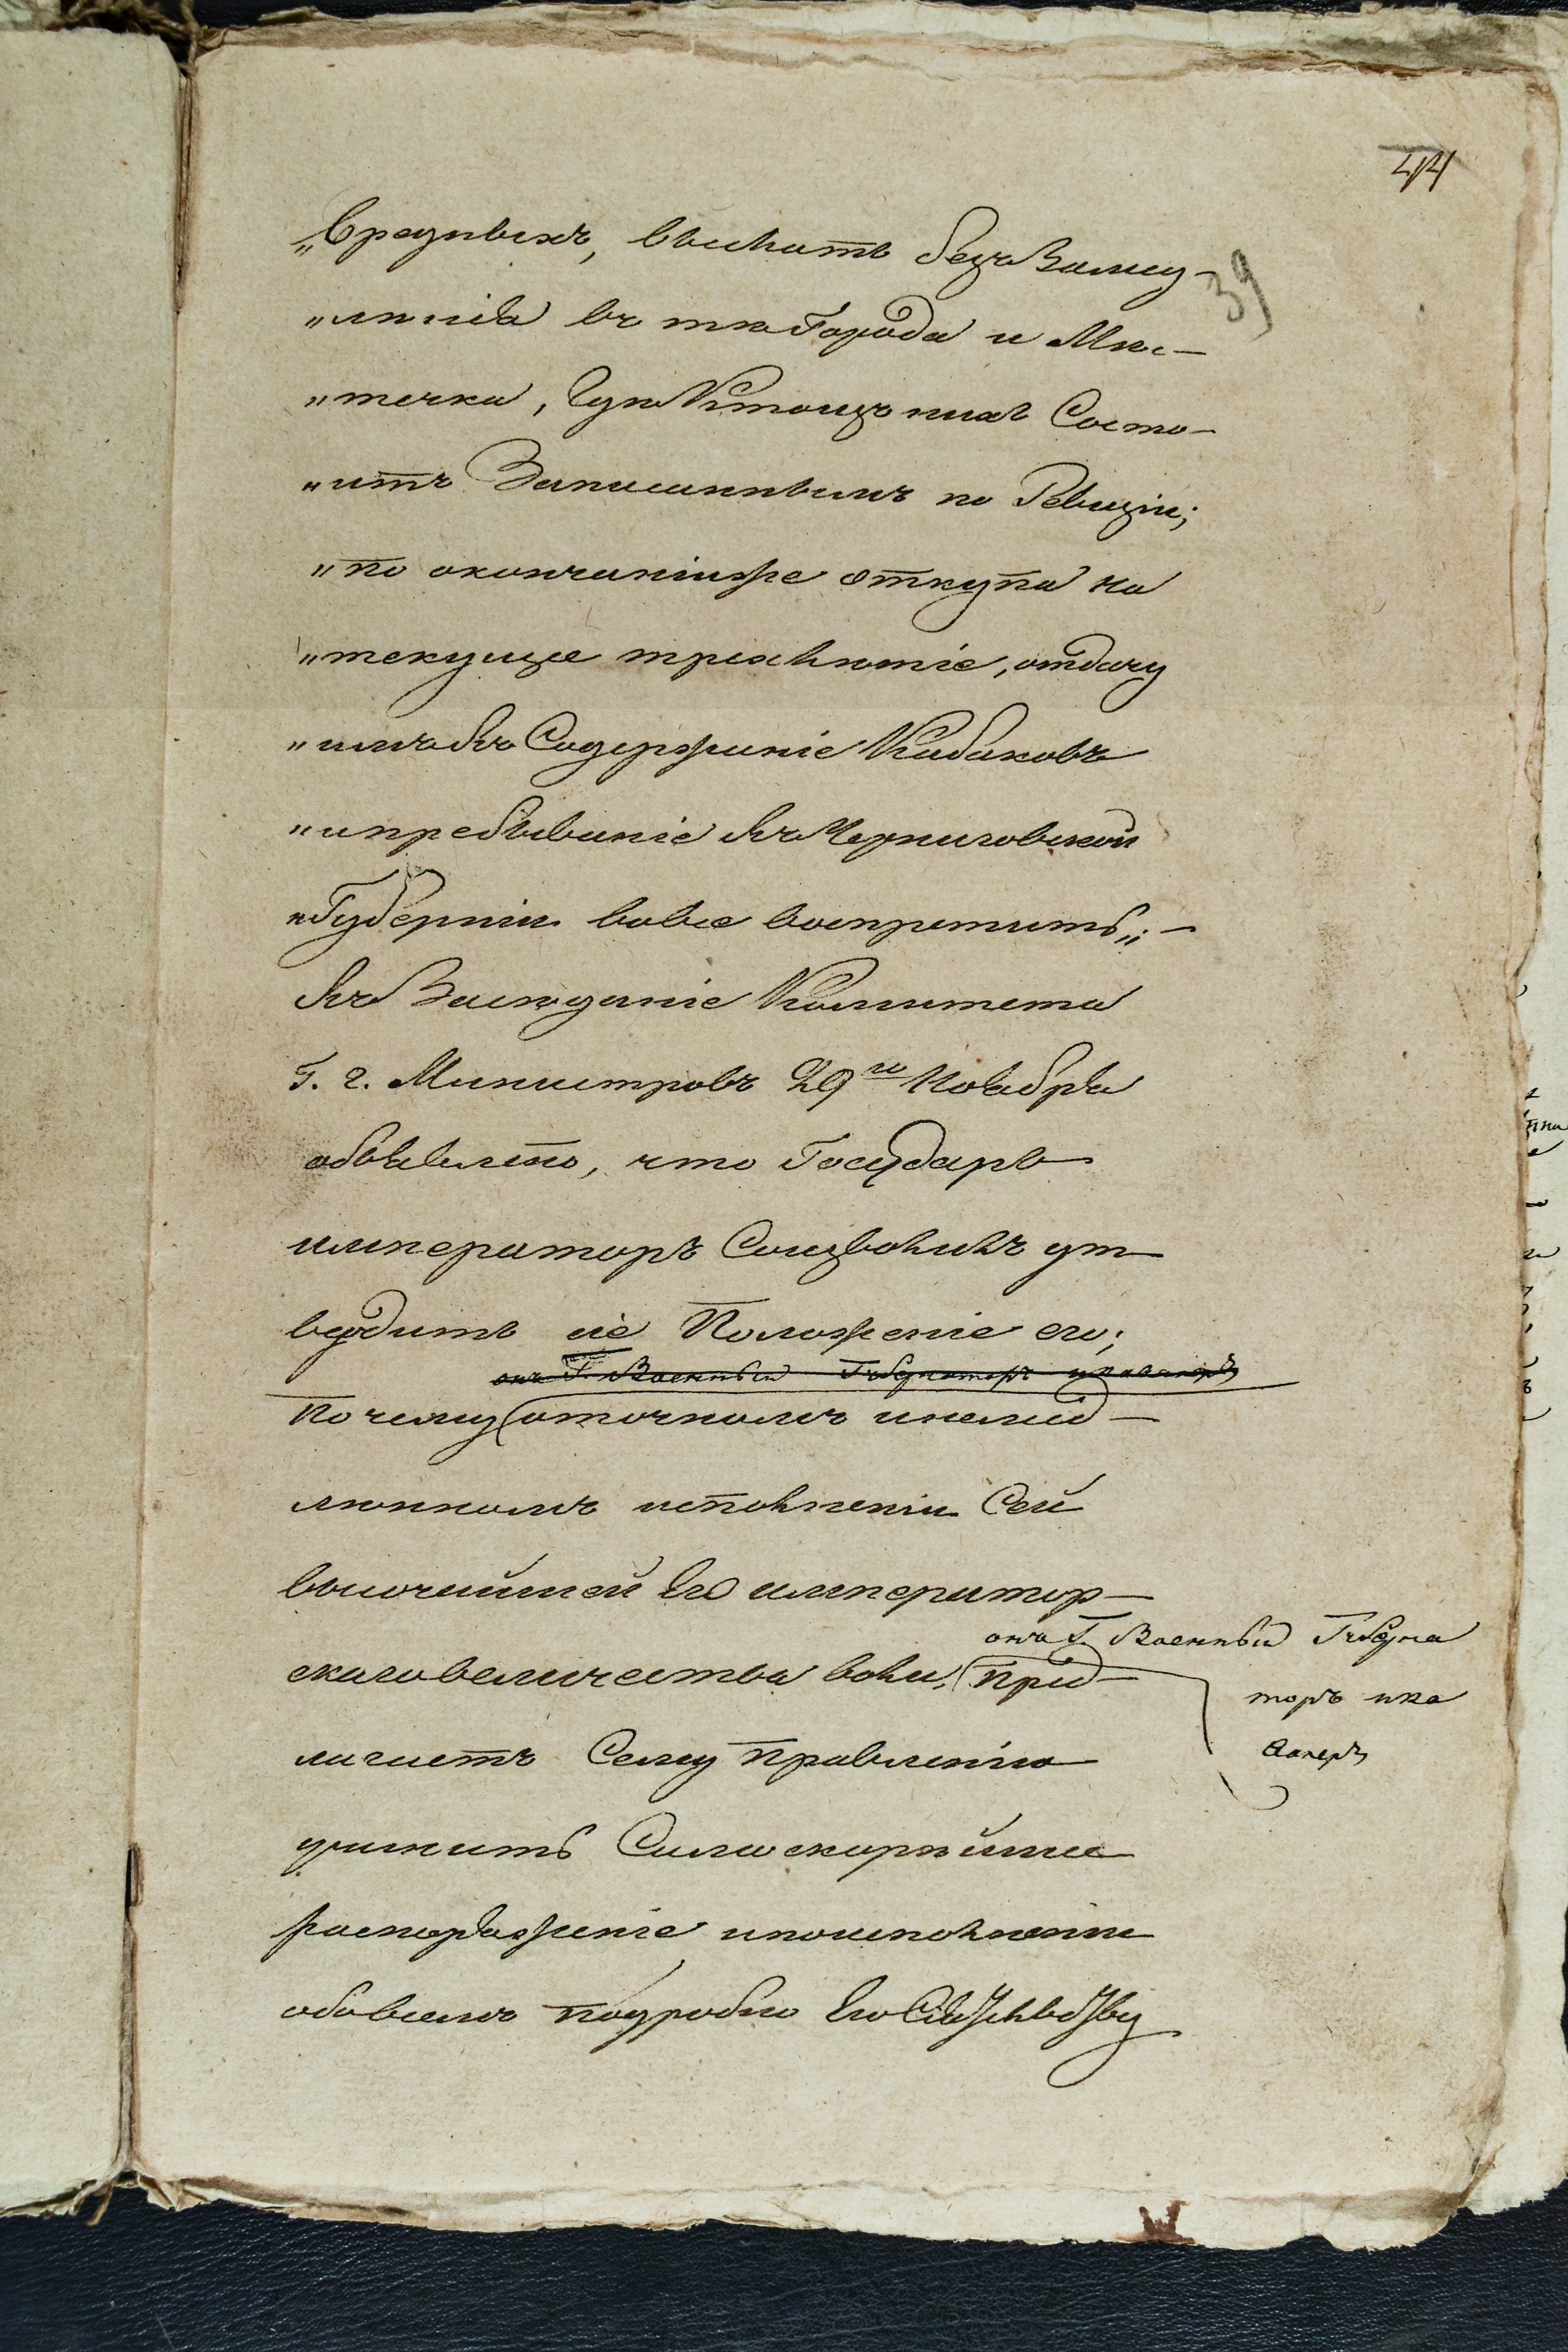 44
39
„вредныхъ, выслать безъ Замед-
„ленія въ тѣ Города и Мѣс-
„течка, гдѣ Кто изъ нихъ Состо-
„итъ Записаннымъ по Ревизіи;
„по окончаніи же откупа на
„текущее трехлѣтіе, отдачу
„имъ въ Содержаніе Кабаковъ
„и пребываніе въ Черниговской
„Губерніи вовсе воспретить„. —
Въ Засѣданіе Комитета
Г. г. Министровъ 29го Ноября
объявлено, что Государь
императоръ Соизволилъ ут-
вердить сіе Положеніе его;
онъ Г. Военный Губернаторъ и кавалеръ
Почему (о точномъ и немед-
ленномъ исполненіи Сей
высочайшей Его император-
скаго величества воли, (пред-
онъ Г. Военный Губерна
торъ и ка
валеръ
лагаетъ Сему Правленію
учинить Само скорѣйшее
распоряженіе и по исполненіи
обо всемъ подробно Его Сіятельству